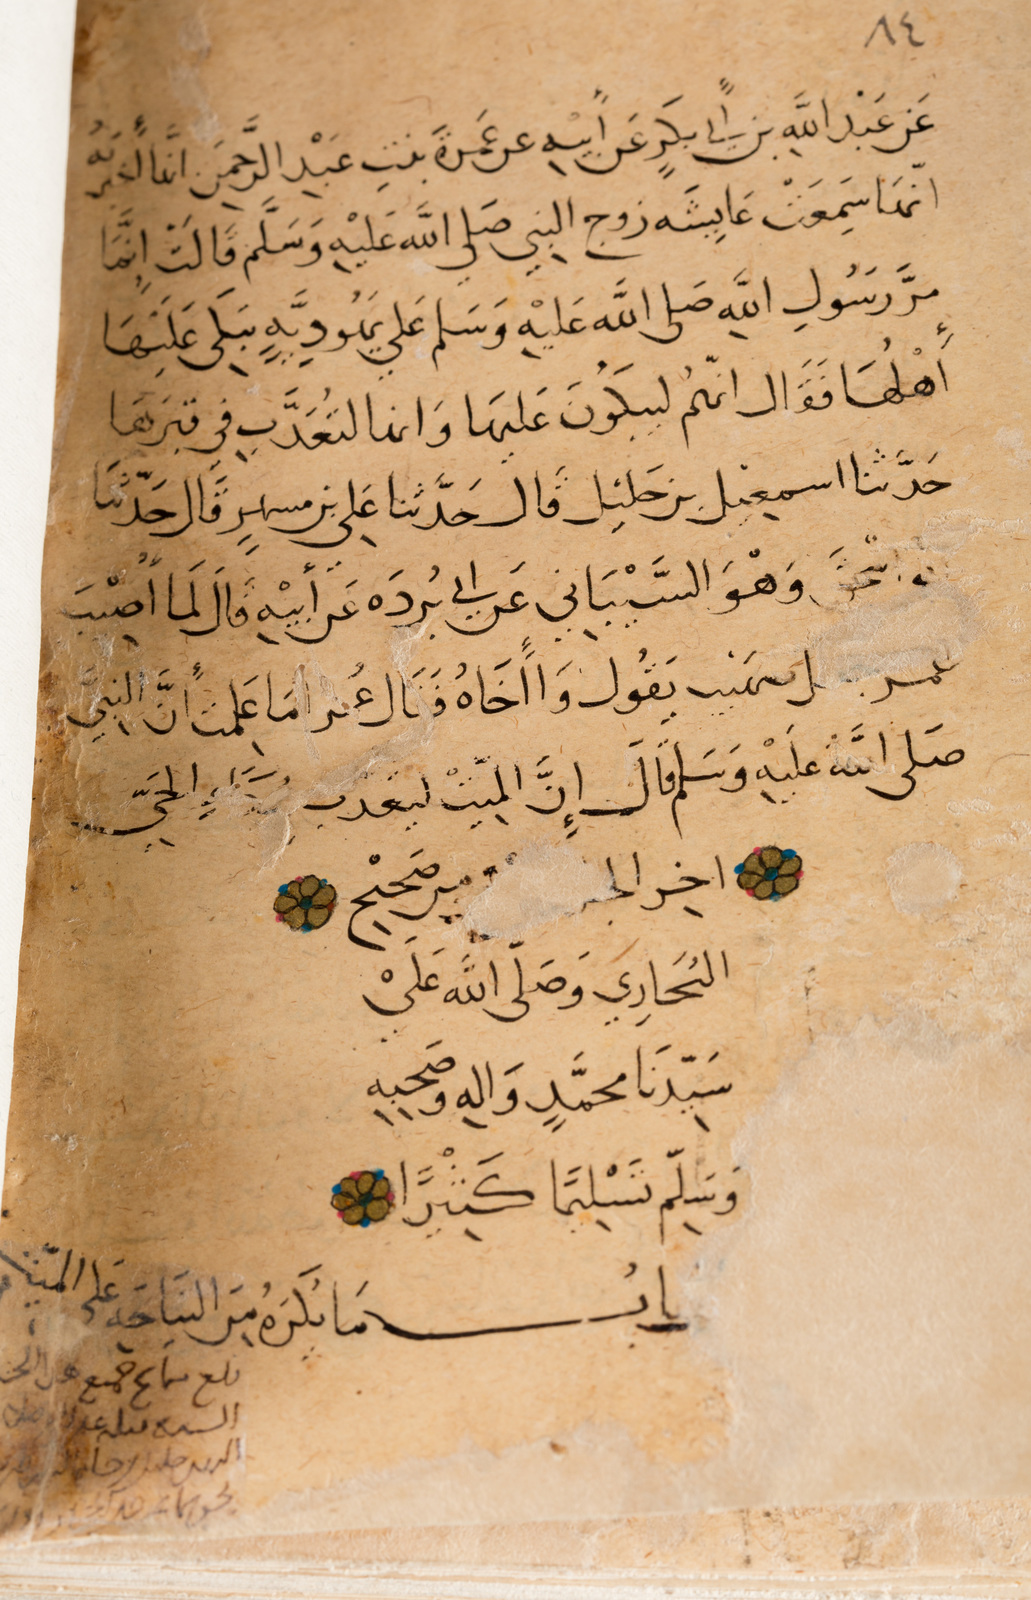 ٨٤
عَن عَبْدِ اللَّهِ بن أبي بكرٍ عَن أَبِيهِ عن عَمْرَةَ بنتِ عَبْدِ الرَّحمنِ انَّها أَخبَرَتْهُ
انّها سَمِعَتْ عَايِشَه زوج النبي صَلى اللَّه عَلَيْهِ وَسَلَّم قَالَتْ إِنَّمَا
مرَّ رَسُولِ اللَّهِ صَلى اللَّه عَليْهِ وَسَلم عَلي يَهُودِيَّةٍ يَبكى عَلَيْهَا
أَهْلُهَا فَقَال انّهُم ليبكُونَ عَليها وَانها لتُعَذَّب في قبْرِهَا
حَدَّثنا اسمعيل بن خليل قَال حَدَّثنا عَلي بن مسهرٍ قَال حَدّثنَا
وَهْوَ الشَّيْبَاني عَن أبي بُردَه عَن أَبيْهِ قَالَ لَمَا أُصِيْبَ
عمر صهَيْب يَقُول وَا أَخَاهُ فَقَال عُمر امَا عَلمتَ أَنَّ النبيَّ
صَلى اللَّه عَلَيْهِ وَسَلم قَالَ إِنَّ المَيّتْ ليعَذب ببُكَاءِ الحَيّ
اخر الجزء من صَحيْح
البُخَارِي وَصَلّى اللَّه عَلَيْ
سَيّدنَا محمَّدٍ وَالهِ وصَحبِهِ
وَسَلّم تَسْلِيمًا كَثيْرًا
بابُ مَا يُكرَهُ مِنَ النيَاحَةِ عَلى الميّت
بلغ سماع جميع